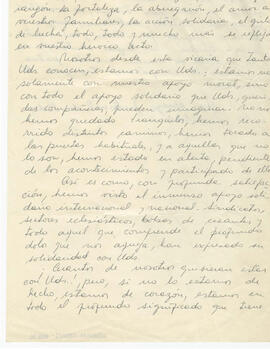 corazón, la fortaleza, la abnegación, el amor a
nuestros familiares, la acción solidaria, el grito
de lucha, todo, todo y mucho más se refleja
en vuestro heroico acto.
Nosotros desde esta vicaría que tanto
Uds. conocen, estamos con Uds.; estamos no
solamente con nuestro apoyo moral, sino
con todo el apoyo solidario que Uds., queri-
das compañeras, pueden imaginar; no nos
hemos quedado tranquilos, hemos reco-
rrido distintos caminos, hemos tocado a
las puertas habituales, y a aquellas que no
lo son, hemos estado en alerta, pendiente
de los acontecimientos y participando de ellos
Así es como, con profunda satisfac-
ción, hemos visto el inmenso apoyo soli-
dario internacional y nacional. Sindicatos,
sectores eclesiásticos, bolsas de cesantes, y
todo aquel que comprende el profundo
dolor que nos aqueja, han expresado su
solidaridad con Uds.
Cuántos de nosotros quisieran estar
con Uds., pero, si no lo estamos de
hecho, estamos de corazón, estamos en
todo el profundo significado que tiene